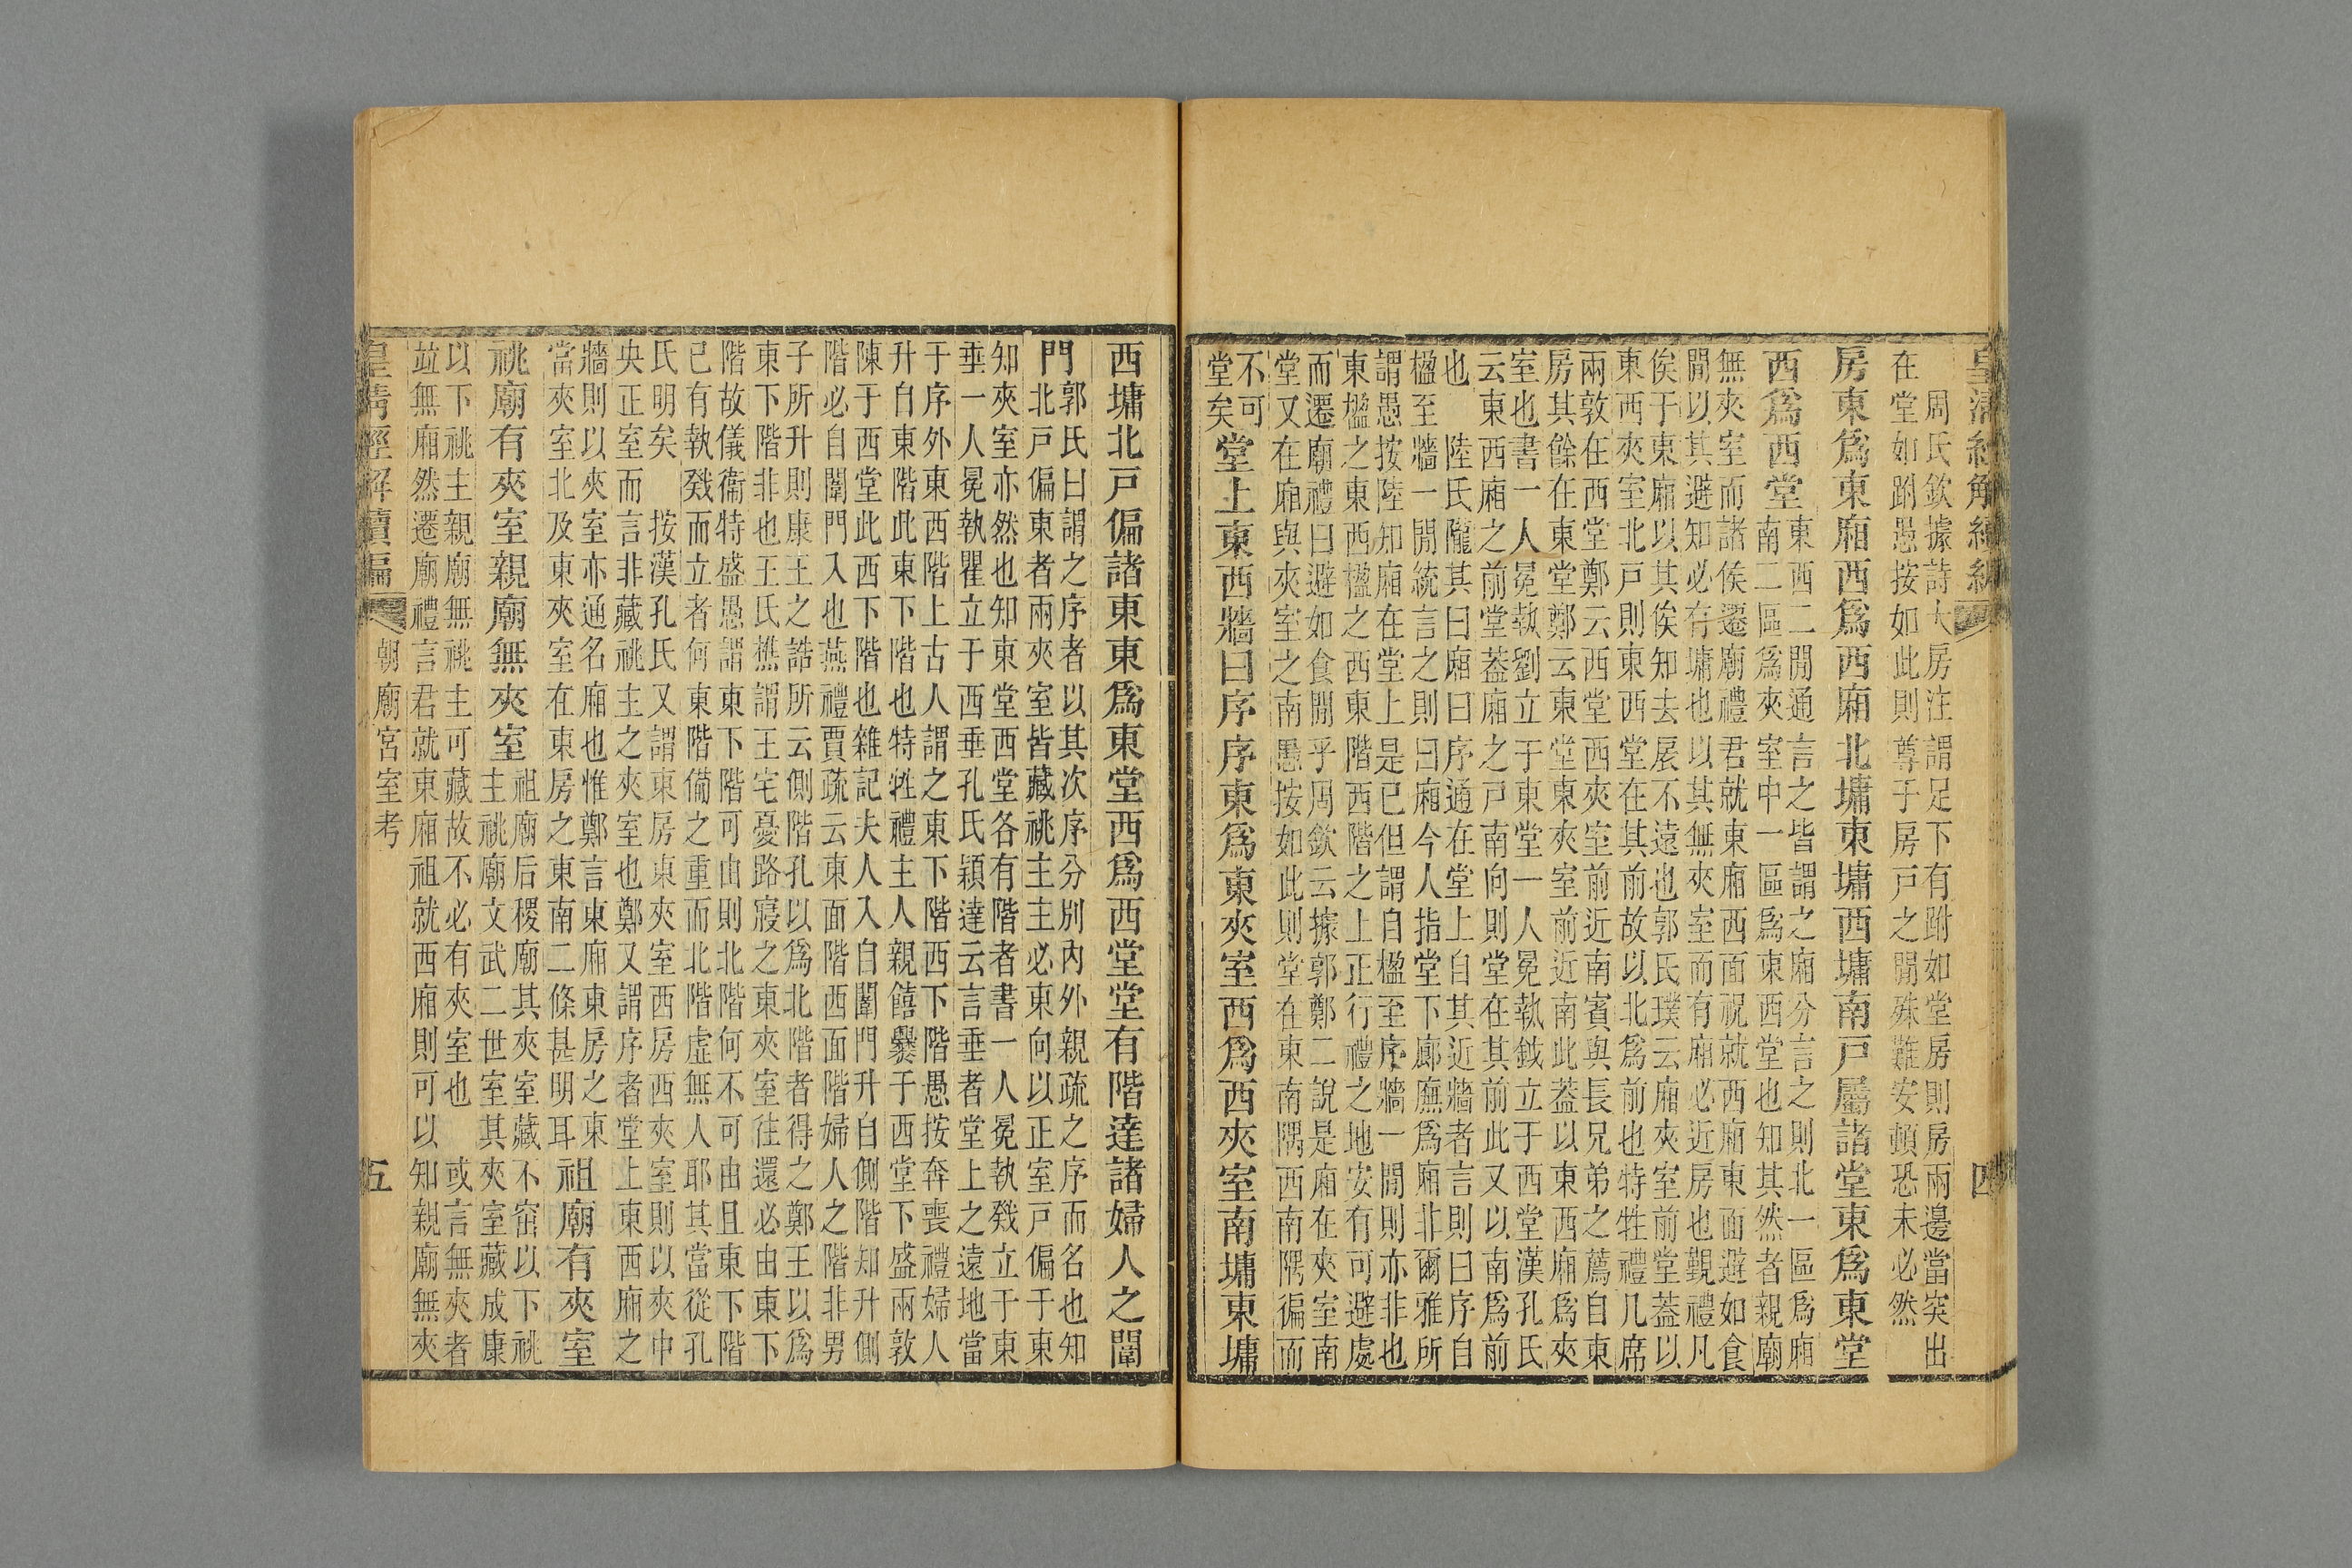 皇清經解續編　四
周氏欽據詩大房注謂足下有跗如堂房則房兩邊當突出
在堂如跗愚按如此則尊于房戸之閒殊難安頓恐未必然
房東爲東廂西爲西廂北墉東墉西墉南戸屬諸堂東爲東堂
西爲西堂
東西二閒通言之皆謂之廂分言之則北一區爲廂
南二區爲夾室中一區爲東西堂也知其然者親廟
無夾室而諸侯遷廟禮君就東廂西面祝就西廂東面避如食
閒以其避知必有墉也以其無夾室而有廂必近房也覲禮凡
俟于東廂以其俟知去扆不遠也郭氏璞云廂夾室前堂蓋以
東西夾室北戸則東西堂在其前故以北爲前也特牲禮几席
兩敦在西堂鄭云西堂西夾室前近南賓與長兄弟之薦自東
房其餘在東堂鄭云東堂東夾室前近南此蓋以東西廂爲夾
室也書一人冕執劉立于東堂一人冕執鉞立于西堂漢孔氏
云東西廂之前堂蓋廂之戸南向則堂在其前此又以南爲前
也　陸氏隴其曰廂曰序通在堂上自其近牆者言則曰序自
楹至牆一閒統言之則曰廂今人指堂下廊廡爲廂非爾雅所
謂愚按陸知廂在堂上是已但謂自楹至序牆一閒則亦非也
東楹之東西楹之西東階西階之上正行禮之地安有可避處
而遷廟禮曰避如食閒乎周欽云據郭鄭二說是廂在夾室南
堂又在廂與夾室之南愚按如此則堂在東南隅西南隅徧而
不可
堂矣
堂上東西牆曰序序東爲東夾室西爲西夾室南墉東墉
西墉北戸偏諸東東爲東堂西爲西堂堂有階達諸婦人之闈
門
郭氏曰謂之序者以其次序分別內外親疏之序而名也知
北戸偏東者兩夾室皆藏祧主主必東向以正室戸偏于東
知夾室亦然也知東堂西堂各有階者書一人冕執戣立于東
垂一人冕執瞿立于西垂孔氏穎達云言垂者堂上之遠地當
于序外東西階上古人謂之東下階西下階愚按奔喪禮婦人
升自東階此東下階也特牲禮主人親饎爨于西堂下盛兩敦
陳于西堂此西下階也雜記夫人入自闈門升自側階知升側
階必自闈門入也燕禮賈疏云東面階西面階婦人之階非男
子所升則康王之誥所云側階孔以爲北階者得之鄭王以爲
東下階非也王氏樵謂王宅憂路寢之東夾室往還必由東下
階故儀衞特盛愚謂東下階可由則北階何不可由且東下階
已有執戣而立者何東階僃之重而北階虛無人耶其當從孔
氏明矣　按漢孔氏又謂東房東夾室西房西夾室則以夾中
央正室而言非藏祧主之夾室也鄭又謂序者堂上東西廂之
牆則以夾室亦通名廂也惟鄭言東廂東房之東
當夾室北及東夾室在東房之東南二條甚明耳
祖廟有夾室
祧廟有夾室親廟無夾室
祖廟后稷廟其夾室藏不窋以下祧
主祧廟文武二世室其夾室藏成康
以下祧主親廟無祧主可藏故不必有夾室也　或言無夾者
竝無廂然遷廟禮言君就東廂祖就西廂則可以知親廟無夾
皇清經解續編　朝廟宮室考　五